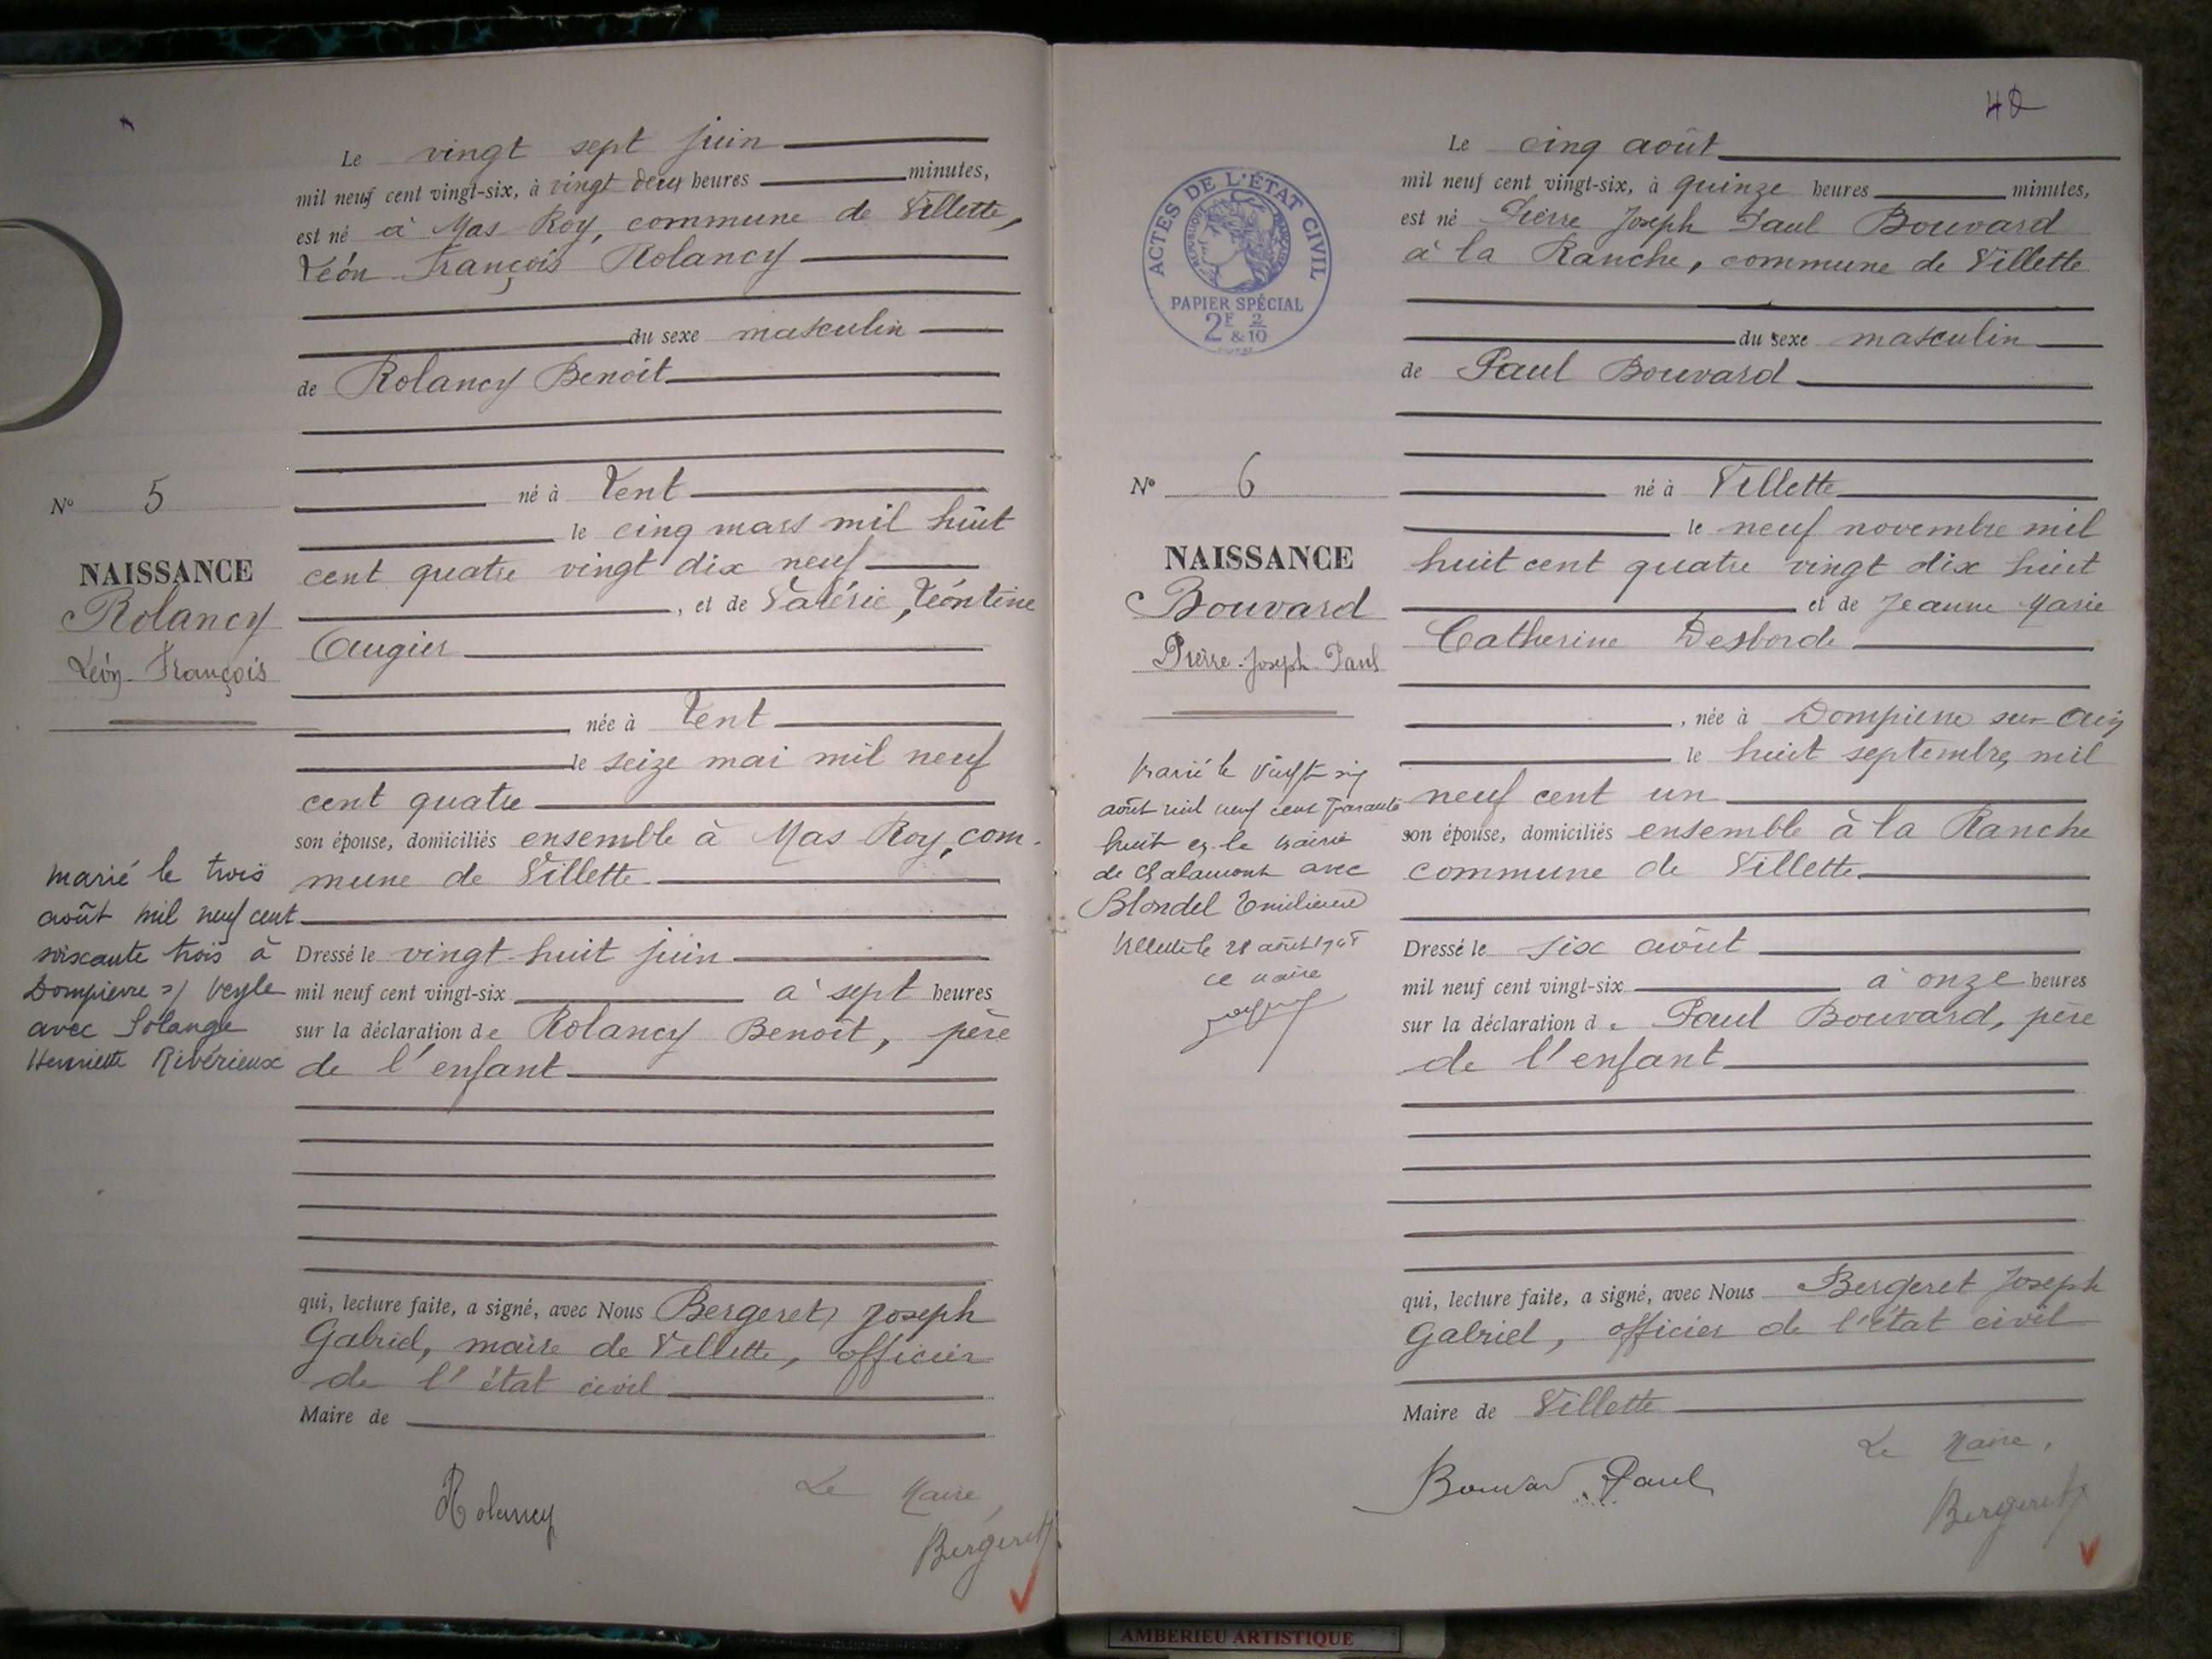 Le vingt sept juin
mil neuf cent vingt-six, à vingt deux heures minutes,
est né à Mas Roy, commune de Villette,
Léon François Rolancy
du sexe masculin
de Rolancy Benoit
né à Lent
le cinq mars mil huit
cent quatre vingt dix neuf
, et de Valérie, Léontine
Augier
née à Lent
le seize mai mil neuf
cent quatre
son épouse, domiciliés ensemble à Mas Roy, com-
mune de Villette
Dressé le vingt-huit juin
mil neuf cent vingt-six à sept heures
sur la déclaration de Rolancy Benoit, père
de l'enfant
qui, lecture faite, a signé, avec Nous Bergeret, Joseph
Gabriel, maire de Villette, officier
de l'état civil
Maire de
Rolancy
Le Maire,
Bergeret
N° 5
NAISSANCE
Rolancy
Léon-François
marié le trois
août mil neuf cent
soixante trois à
Dompierre s/ Veyle
avec Solange
Henriette Rivérieux
42
Le cinq août
mil neuf cent vingt-six, à quinze heures minutes,
est né Pierre Joseph Paul Bouvard
à la Ranche, commune de Villette
du sexe masculin
de Paul Bouvard
né à Villette
le neuf novembre mil
huit cent quatre vingt dix huit
et de Jeanne Marie
Catherine Desborde
, née à Dompierre sur Ain
le huit septembre mil
neuf cent un
son épouse, domiciliés ensemble à la Ranche
commune de Villette
Dressé le six août
mil neuf cent vingt-six à onze heures
sur la déclaration de Paul Bouvard, père
de l'enfant
qui, lecture faite, a signé, avec Nous Bergeret Joseph
Gabriel, officier de l'état civil
Maire de Villette
Bouvard Paul
Le Maire,
Bergeret
ACTES DE L'ÉTAT CIVIL
RÉPUBLIQUE FRANÇAISE
PAPIER SPÉCIAL
2F & 2/10
N° 6
NAISSANCE
Bouvard
Pierre-Joseph-Paul
Marié le vingt six
août mil neuf cent quarante
huit en la mairie
de Chalamont avec
Blondel Emilienne
Villette le 28 août 1948
Le Maire
AMBERIEU ARTISTIQUE